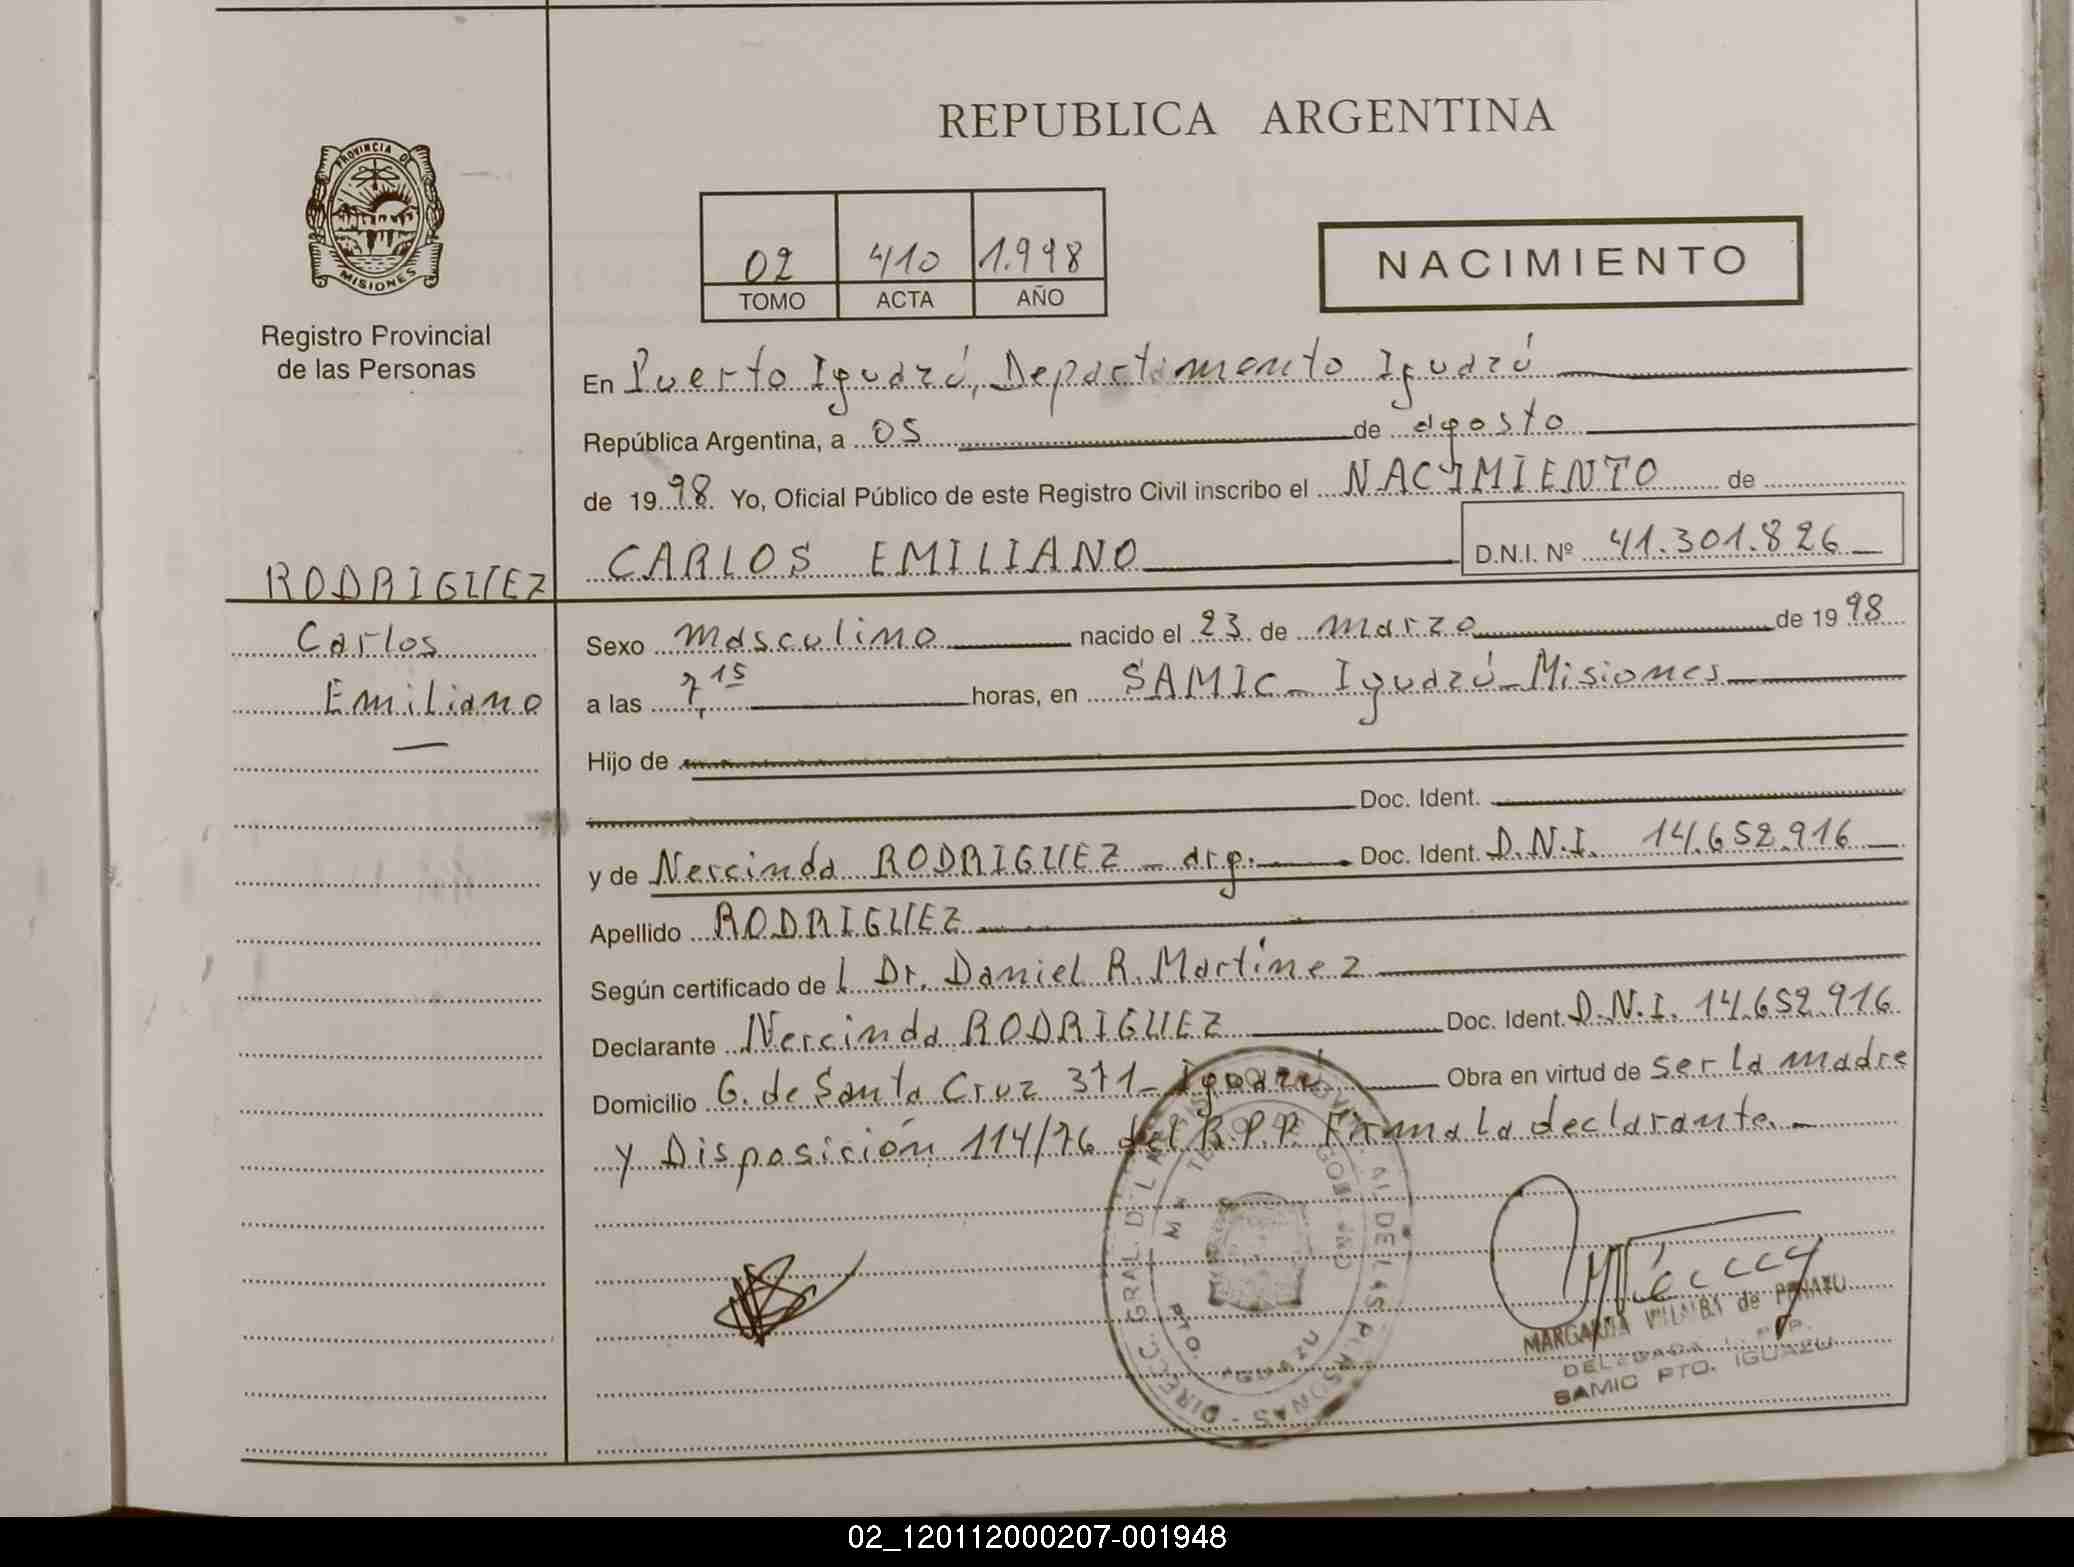 REPUBLICA ARGENTINA
PROVINCIA DE
MISIONES
Registro Provincial
de las Personas
02 410 1.998
TOMO ACTA AÑO
NACIMIENTO
En Puerto Iguazú, Departamento Iguazú
República Argentina, a 05 de agosto
de 19 98 Yo, Oficial Público de este Registro Civil inscribo el NACIMIENTO de
CARLOS EMILIANO D.N.I. Nº 41.301.826
RODRIGUEZ
Carlos
Emiliano
Sexo masculino nacido el 23 de marzo de 19 98
a las 7,15 horas, en SAMIC - Iguazú - Misiones
Hijo de
Doc. Ident.
y de Nercinda RODRIGUEZ - arg. Doc. Ident. D.N.I. 14.652.916
Apellido RODRIGUEZ
Según certificado de l Dr. Daniel R. Martínez
Declarante Nercinda RODRIGUEZ Doc. Ident. D.N.I. 14.652.916
Domicilio G. de Santa Cruz 371 - Iguazú Obra en virtud de ser la madre
y Disposición 114/76 del R.P.P. Firma la declarante. -
DIRECC. GRAL. DEL PERSONAS
PTO. IGUAZU
MARGARITA VILLALBA de
DELEGADA R.P.P.
SAMIC PTO. IGUAZU
02_120112000207-001948